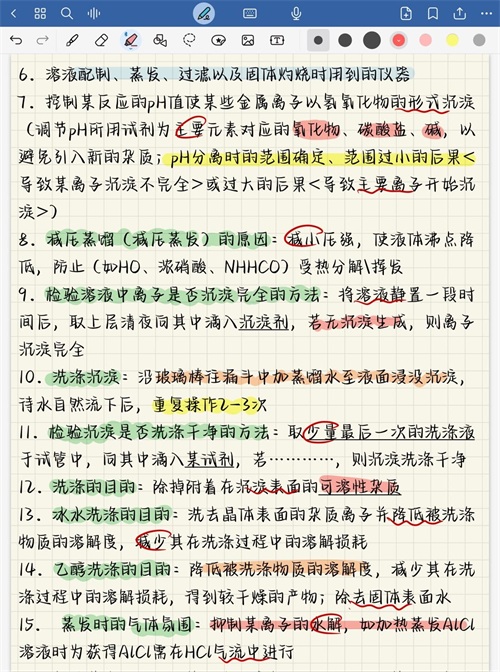 6. 溶液配制、蒸发、过滤以及固体灼烧时用到的仪器
7. 控制某反应的pH值使某些金属离子以氢氧化物的形式沉淀
(调节pH所用试剂为主要元素对应的氧化物、碳酸盐、碱，以
避免引入新的杂质；pH分离时的范围确定、范围过小的后果<
导致某离子沉淀不完全>或过大的后果<导致主要离子开始沉
淀>)
8. 减压蒸馏(减压蒸发)的原因：减小压强，使液体沸点降
低，防止(如HO、浓硝酸、NHHCO)受热分解\挥发
9. 检验溶液中离子是否沉淀完全的方法：将溶液静置一段时
间后，取上层清夜向其中滴入沉淀剂，若无沉淀生成，则离子
沉淀完全
10. 洗涤沉淀：沿玻璃棒往漏斗中加蒸馏水至液面浸没沉淀，
待水自然流下后，重复操作2-3次
11. 检验沉淀是否洗涤干净的方法：取少量最后一次的洗涤液
于试管中，向其中滴入某试剂，若…………，则沉淀洗涤干净
12. 洗涤的目的：除掉附着在沉淀表面的可溶性杂质
13. 水水洗涤的目的：洗去晶体表面的杂质离子并降低被洗涤
物质的溶解度，减少其在洗涤过程中的溶解损耗
14. 乙醇洗涤的目的：降低被洗涤物质的溶解度，减少其在洗
涤过程中的溶解损耗，得到较干燥的产物；除去固体表面水
15. 蒸发时的气体氛围：抑制某离子的水解，如加热蒸发AlCl
溶液时为获得AlCl需在HCl气流中进行